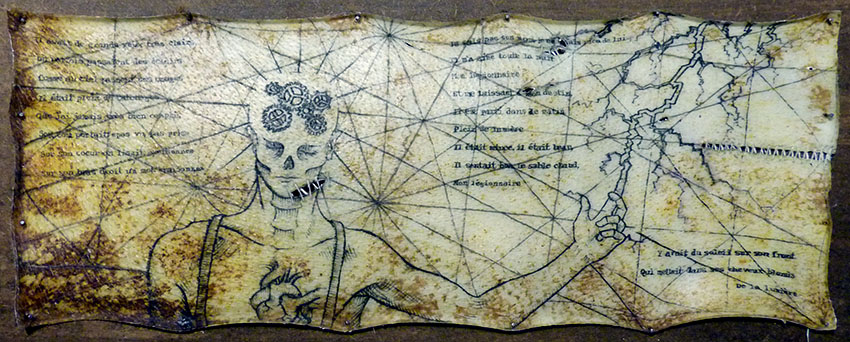 Il avait de grands yeux très clairs
Où parfois passaient des éclairs
Comme au ciel passent des orages
Il était plein de tatouages
Que j'ai jamais très bien compris
Son cou portait: pas vu pas pris
Sur son coeur on lisait personne
Sur son bras droit un mot raisonne
Je sais pas son nom, je sais rien de lui
Il m'a aimé toute la nuit
Mon légionnaire
Et me laissant à mon destin
Il est parti dans le matin
Plein de lumière
Il était mince, il était beau
Il sentait bon le sable chaud,
Mon légionnaire
Y avait du soleil sur son front
Qui mettait dans ses cheveux blonds
De la lumière